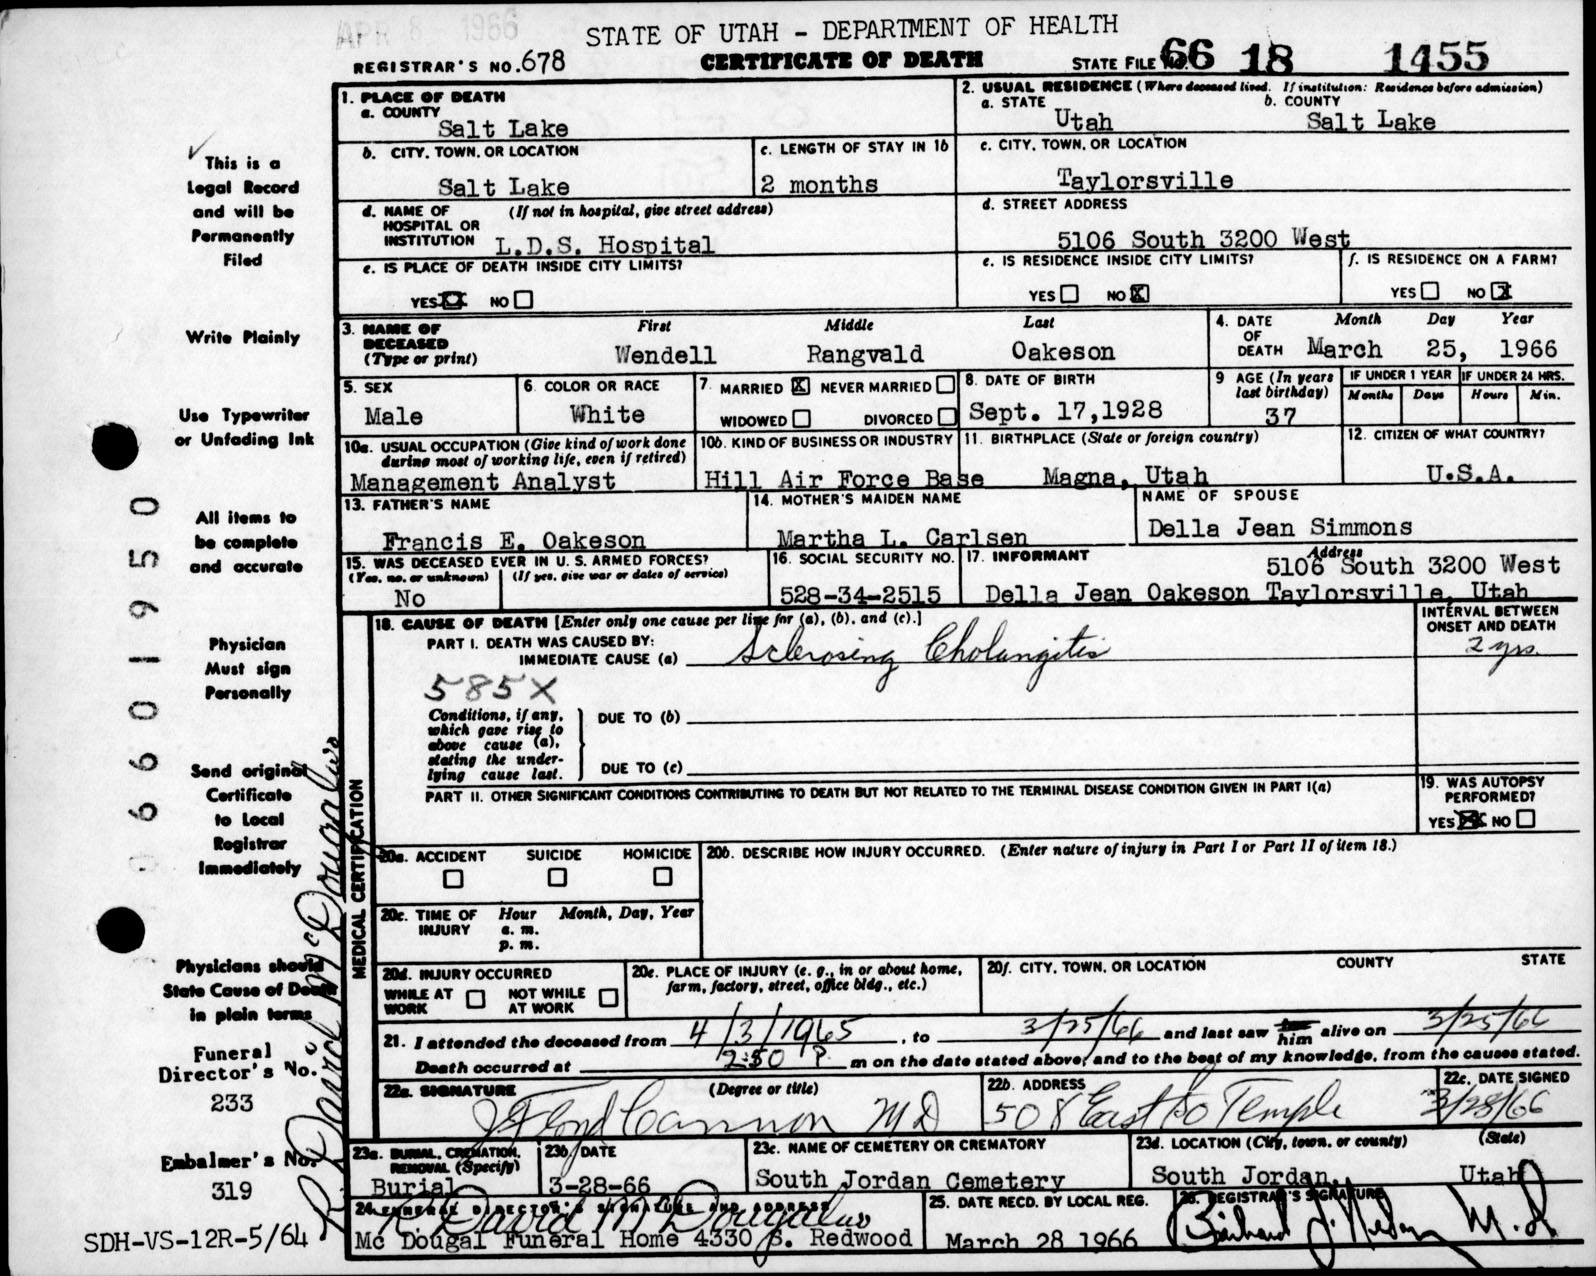 APR 8 1966
STATE OF UTAH - DEPARTMENT OF HEALTH
REGISTRAR'S NO. 678 CERTIFICATE OF DEATH STATE FILE NO. 66 18 1455
1. PLACE OF DEATH
a. COUNTY
Salt Lake
2. USUAL RESIDENCE (Where deceased lived. If institution: Residence before admission)
a. STATE b. COUNTY
Utah Salt Lake
b. CITY, TOWN, OR LOCATION
Salt Lake
c. LENGTH OF STAY IN 1b
2 months
c. CITY, TOWN, OR LOCATION
Taylorsville
d. NAME OF HOSPITAL OR INSTITUTION (If not in hospital, give street address)
L.D.S. Hospital
d. STREET ADDRESS
5106 South 3200 West
e. IS PLACE OF DEATH INSIDE CITY LIMITS?
YES X NO
e. IS RESIDENCE INSIDE CITY LIMITS?
YES NO X
f. IS RESIDENCE ON A FARM?
YES NO X
3. NAME OF DECEASED (Type or print)
First Middle Last
Wendell Rangvald Oakeson
4. DATE OF DEATH
Month Day Year
March 25, 1966
5. SEX
Male
6. COLOR OR RACE
White
7. MARRIED X NEVER MARRIED
WIDOWED DIVORCED
8. DATE OF BIRTH
Sept. 17,1928
9 AGE (In years last birthday)
37
IF UNDER 1 YEAR
Months Days
IF UNDER 24 HRS.
Hours Min.
10a. USUAL OCCUPATION (Give kind of work done during most of working life, even if retired)
Management Analyst
10b. KIND OF BUSINESS OR INDUSTRY
Hill Air Force Base
11. BIRTHPLACE (State or foreign country)
Magna, Utah
12. CITIZEN OF WHAT COUNTRY?
U.S.A.
13. FATHER'S NAME
Francis E. Oakeson
14. MOTHER'S MAIDEN NAME
Martha L. Carlsen
NAME OF SPOUSE
Della Jean Simmons
15. WAS DECEASED EVER IN U. S. ARMED FORCES?
(Yes, no, or unknown) (If yes, give war or dates of service)
No
16. SOCIAL SECURITY NO.
528-34-2515
17. INFORMANT Address
5106 South 3200 West
Della Jean Oakeson Taylorsville, Utah
18. CAUSE OF DEATH [Enter only one cause per line for (a), (b), and (c).]
PART I. DEATH WAS CAUSED BY:
IMMEDIATE CAUSE (a) Sclerosing Cholangitis
INTERVAL BETWEEN ONSET AND DEATH
2 yrs.
585X
Conditions, if any, which gave rise to above cause (a), stating the underlying cause last.
DUE TO (b)
DUE TO (c)
PART II. OTHER SIGNIFICANT CONDITIONS CONTRIBUTING TO DEATH BUT NOT RELATED TO THE TERMINAL DISEASE CONDITION GIVEN IN PART I(a)
19. WAS AUTOPSY PERFORMED?
YES X NO
MEDICAL CERTIFICATION
20a. ACCIDENT SUICIDE HOMICIDE
20b. DESCRIBE HOW INJURY OCCURRED. (Enter nature of injury in Part I or Part II of item 18.)
20c. TIME OF INJURY
Hour Month, Day, Year
a. m.
p. m.
20d. INJURY OCCURRED
WHILE AT WORK NOT WHILE AT WORK
20e. PLACE OF INJURY (e. g., in or about home, farm, factory, street, office bldg., etc.)
20f. CITY, TOWN, OR LOCATION COUNTY STATE
21. I attended the deceased from 4/3/1965, to 3/25/66 and last saw him alive on 3/25/66
Death occurred at 2:50 P. m on the date stated above; and to the best of my knowledge, from the causes stated.
22a. SIGNATURE (Degree or title)
J Floyd Cannon MD
22b. ADDRESS
508 East So Temple
22c. DATE SIGNED
3/28/66
23a. BURIAL, CREMATION, REMOVAL (Specify)
Burial
23b DATE
3-28-66
23c. NAME OF CEMETERY OR CREMATORY
South Jordan Cemetery
23d. LOCATION (City, town, or county) (State)
South Jordan, Utah
24. FUNERAL DIRECTOR'S SIGNATURE AND ADDRESS
R David McDougal
Mc Dougal Funeral Home 4330 S. Redwood
25. DATE RECD. BY LOCAL REG.
March 28 1966
26. REGISTRAR'S SIGNATURE
M.D.
This is a
Legal Record
and will be
Permanently
Filed
Write Plainly
Use Typewriter
or Unfading Ink
All items to
be complete
and accurate
Physician
Must sign
Personally
Send original
Certificate
to Local
Registrar
Immediately
Physicians should
State Cause of Death
in plain terms
Funeral
Director's No.
233
Embalmer's No.
319
SDH-VS-12R-5/64
R David McDougal
6601950